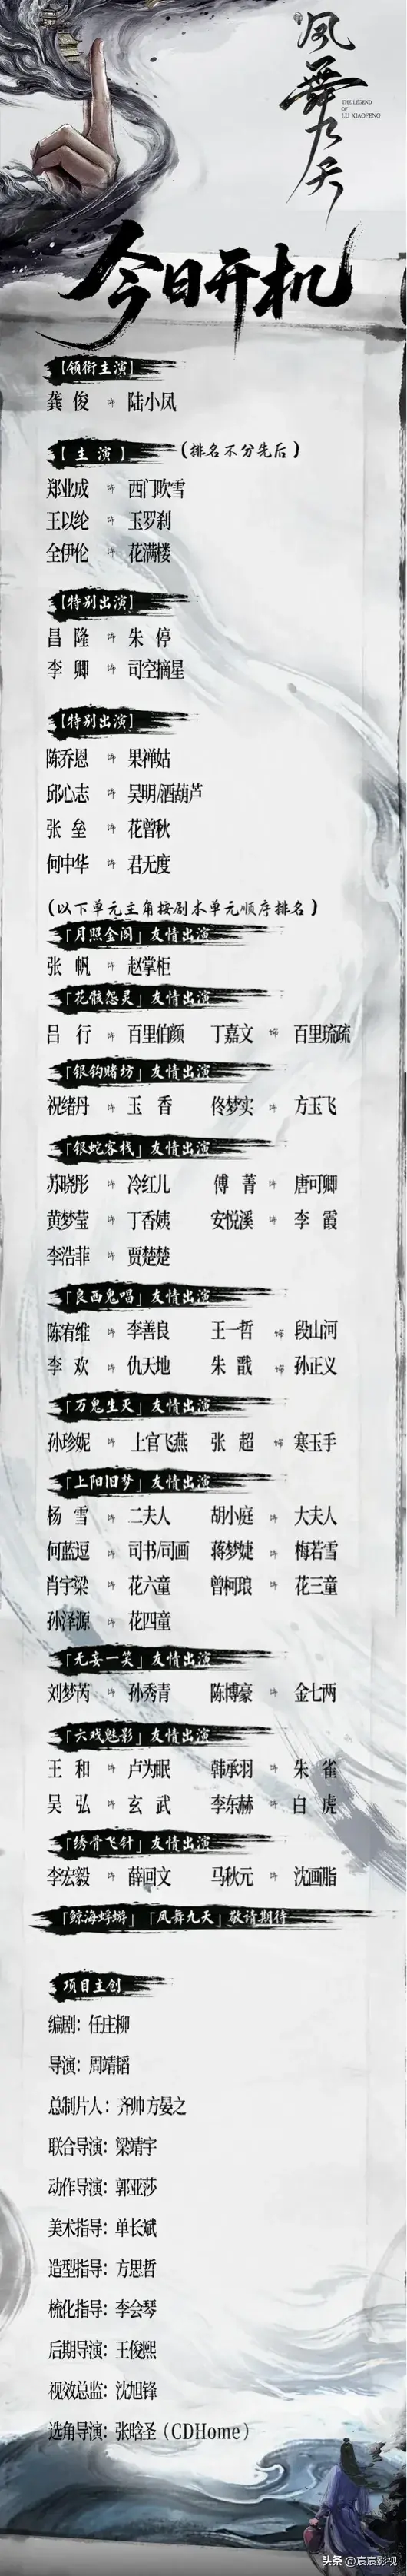 凤舞九天
THE LEGEND
OF
LU XIAOFENG
今日开机
【领衔主演】
龚俊 饰 陆小凤
【主演】（排名不分先后）
郑业成 饰 西门吹雪
王以纶 饰 玉罗刹
全伊伦 饰 花满楼
【特别出演】
昌隆 饰 朱停
李卿 饰 司空摘星
【特别出演】
陈乔恩 饰 果禅姑
邱心志 饰 吴明/酒葫芦
张垒 饰 花曾秋
何中华 饰 君无度
（以下单元主角按剧本单元顺序排名）
「月照金阁」友情出演
张帆 饰 赵掌柜
「花骸怨灵」友情出演
吕行 饰 百里伯颜 丁嘉文 饰 百里琉疏
「银钩赌坊」友情出演
祝绪丹 饰 玉香 佟梦实 饰 方玉飞
「银蛇客栈」友情出演
苏晓彤 饰 冷红儿 傅菁 饰 唐可卿
黄梦莹 饰 丁香姨 安悦溪 饰 李霞
李浩菲 饰 贾楚楚
「良西鬼唱」友情出演
陈宥维 饰 李善良 王一哲 饰 段山河
李欢 饰 仇天地 朱戬 饰 孙正义
「万鬼生天」友情出演
孙珍妮 饰 上官飞燕 张超 饰 寒玉手
「上阳旧梦」友情出演
杨雪 饰 二夫人 胡小庭 饰 大夫人
何蓝逗 饰 司书/司画 蒋梦婕 饰 梅若雪
肖宇梁 饰 花六童 曾柯琅 饰 花三童
孙泽源 饰 花四童
「无妄一笑」友情出演
刘梦芮 饰 孙秀青 陈博豪 饰 金七两
「六戏魅影」友情出演
王和 饰 卢为眠 韩承羽 饰 朱雀
吴弘 饰 玄武 李东赫 饰 白虎
「绣骨飞针」友情出演
李宏毅 饰 薛回文 马秋元 饰 沈画脂
「鲸海蜉蝣」「凤舞九天」敬请期待
项目主创
编剧：任庄柳
导演：周靖韬
总制片人：齐帅 方晏之
联合导演：梁靖宇
动作导演：郭亚莎
美术指导：单长斌
造型指导：方思哲
梳化指导：李会琴
后期导演：王俊熙
视效总监：沈旭锋
选角导演：张晗圣（CDHome）
头条 @宸宸影视